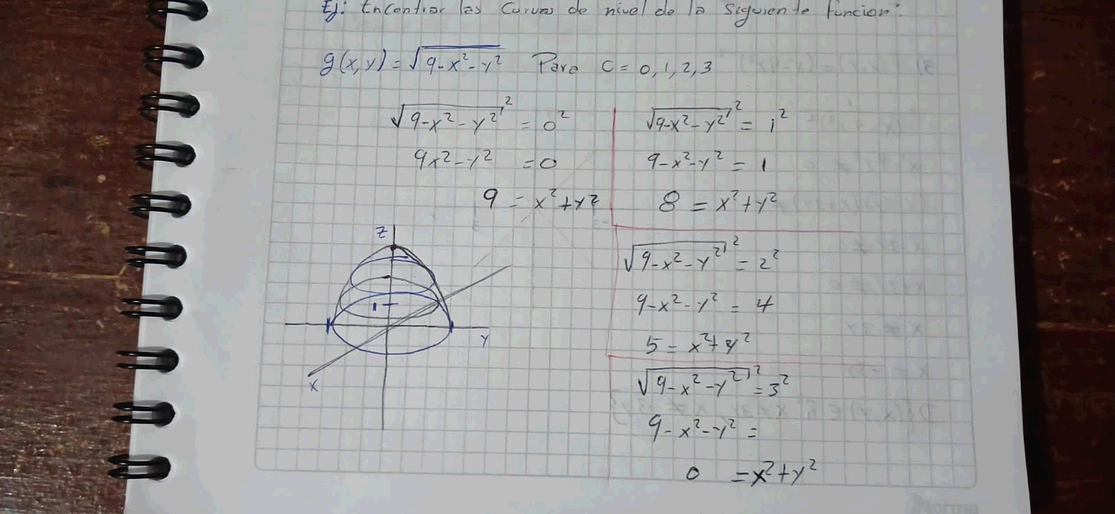 Ej: Encontrar las Curvas de nivel de la siguiente funcion:
g(x,y) = √(9-x²-y²) Para C = 0,1,2,3
√(9-x²-y²)² = 0²
9x²-y² = 0
9 = x²+y²
√(9-x²-y²)² = 1²
9-x²-y² = 1
8 = x²+y²
√(9-x²-y²)² = 2²
9-x²-y² = 4
5 = x²+y²
√(9-x²-y²)² = 3²
9-x²-y² =
0 = x²+y²
Z
1
Y
X